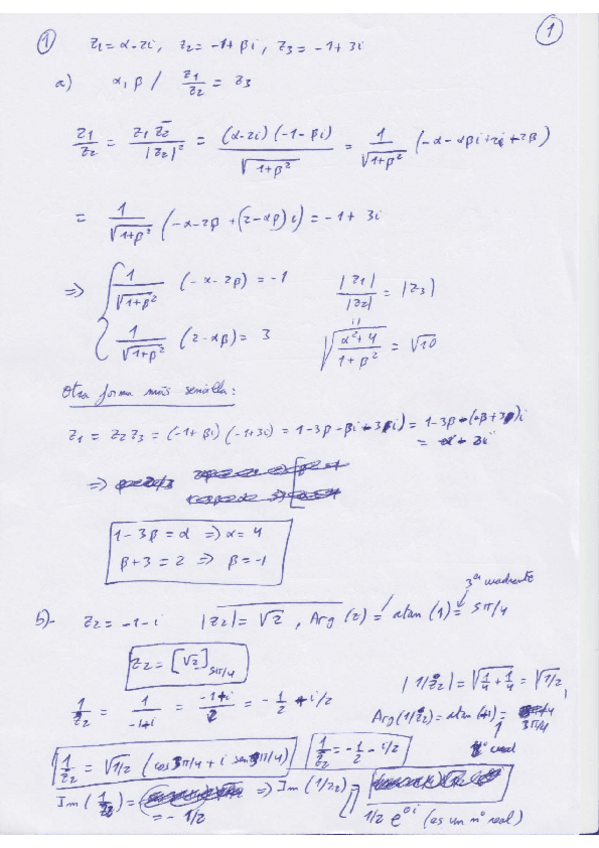 1
① z₁ = α-2i, z₂ = -1+βi, z₃ = -1+3i
a) α, β / z₁/z₂ = z₃
z₁/z₂ = z₁ z̄₂/|z₂|² = (α-2i)(-1-βi)/√(1+β²) = 1/√(1+β²) (-α-αβi+2i+2β)
= 1/√(1+β²) (-α-2β+(2-αβ)i) = -1+3i
⇒ { 1/√(1+β²) (-α-2β) = -1 |z₁|/|z₂| = |z₃|
1/√(1+β²) (2-αβ) = 3 √((α²+4)/(1+β²)) = √10
Otra forma más sencilla:
z₁ = z₂z₃ = (-1+βi)(-1+3i) = 1-3β-βi-3i) = 1-3β-(β+3)i
= α-2i
⇒
1-3β = α ⇒ α = 4
β+3 = 2 ⇒ β = -1
b)- z₂ = -1-i |z₂| = √2, Arg(z) = atan(1) = 5π/4
3er cuadrante
z₂ = [√2]5π/4
|1/z₂| = √(1/4+1/4) = √1/2,
1/z₂ = 1/(-1+i) = (-1+i)/2 = -1/2+i/2
Arg(1/z₂) = atan(-1) = 3π/4
1/z₂ = √1/2 (cos3π/4+i sen3π/4) 1/z₂ = -1/2-i/2 nº real
Im(1/z₂) = ⇒ Im(1/z₂) =
= -1/2 1/2 e^0i (es un nº real)